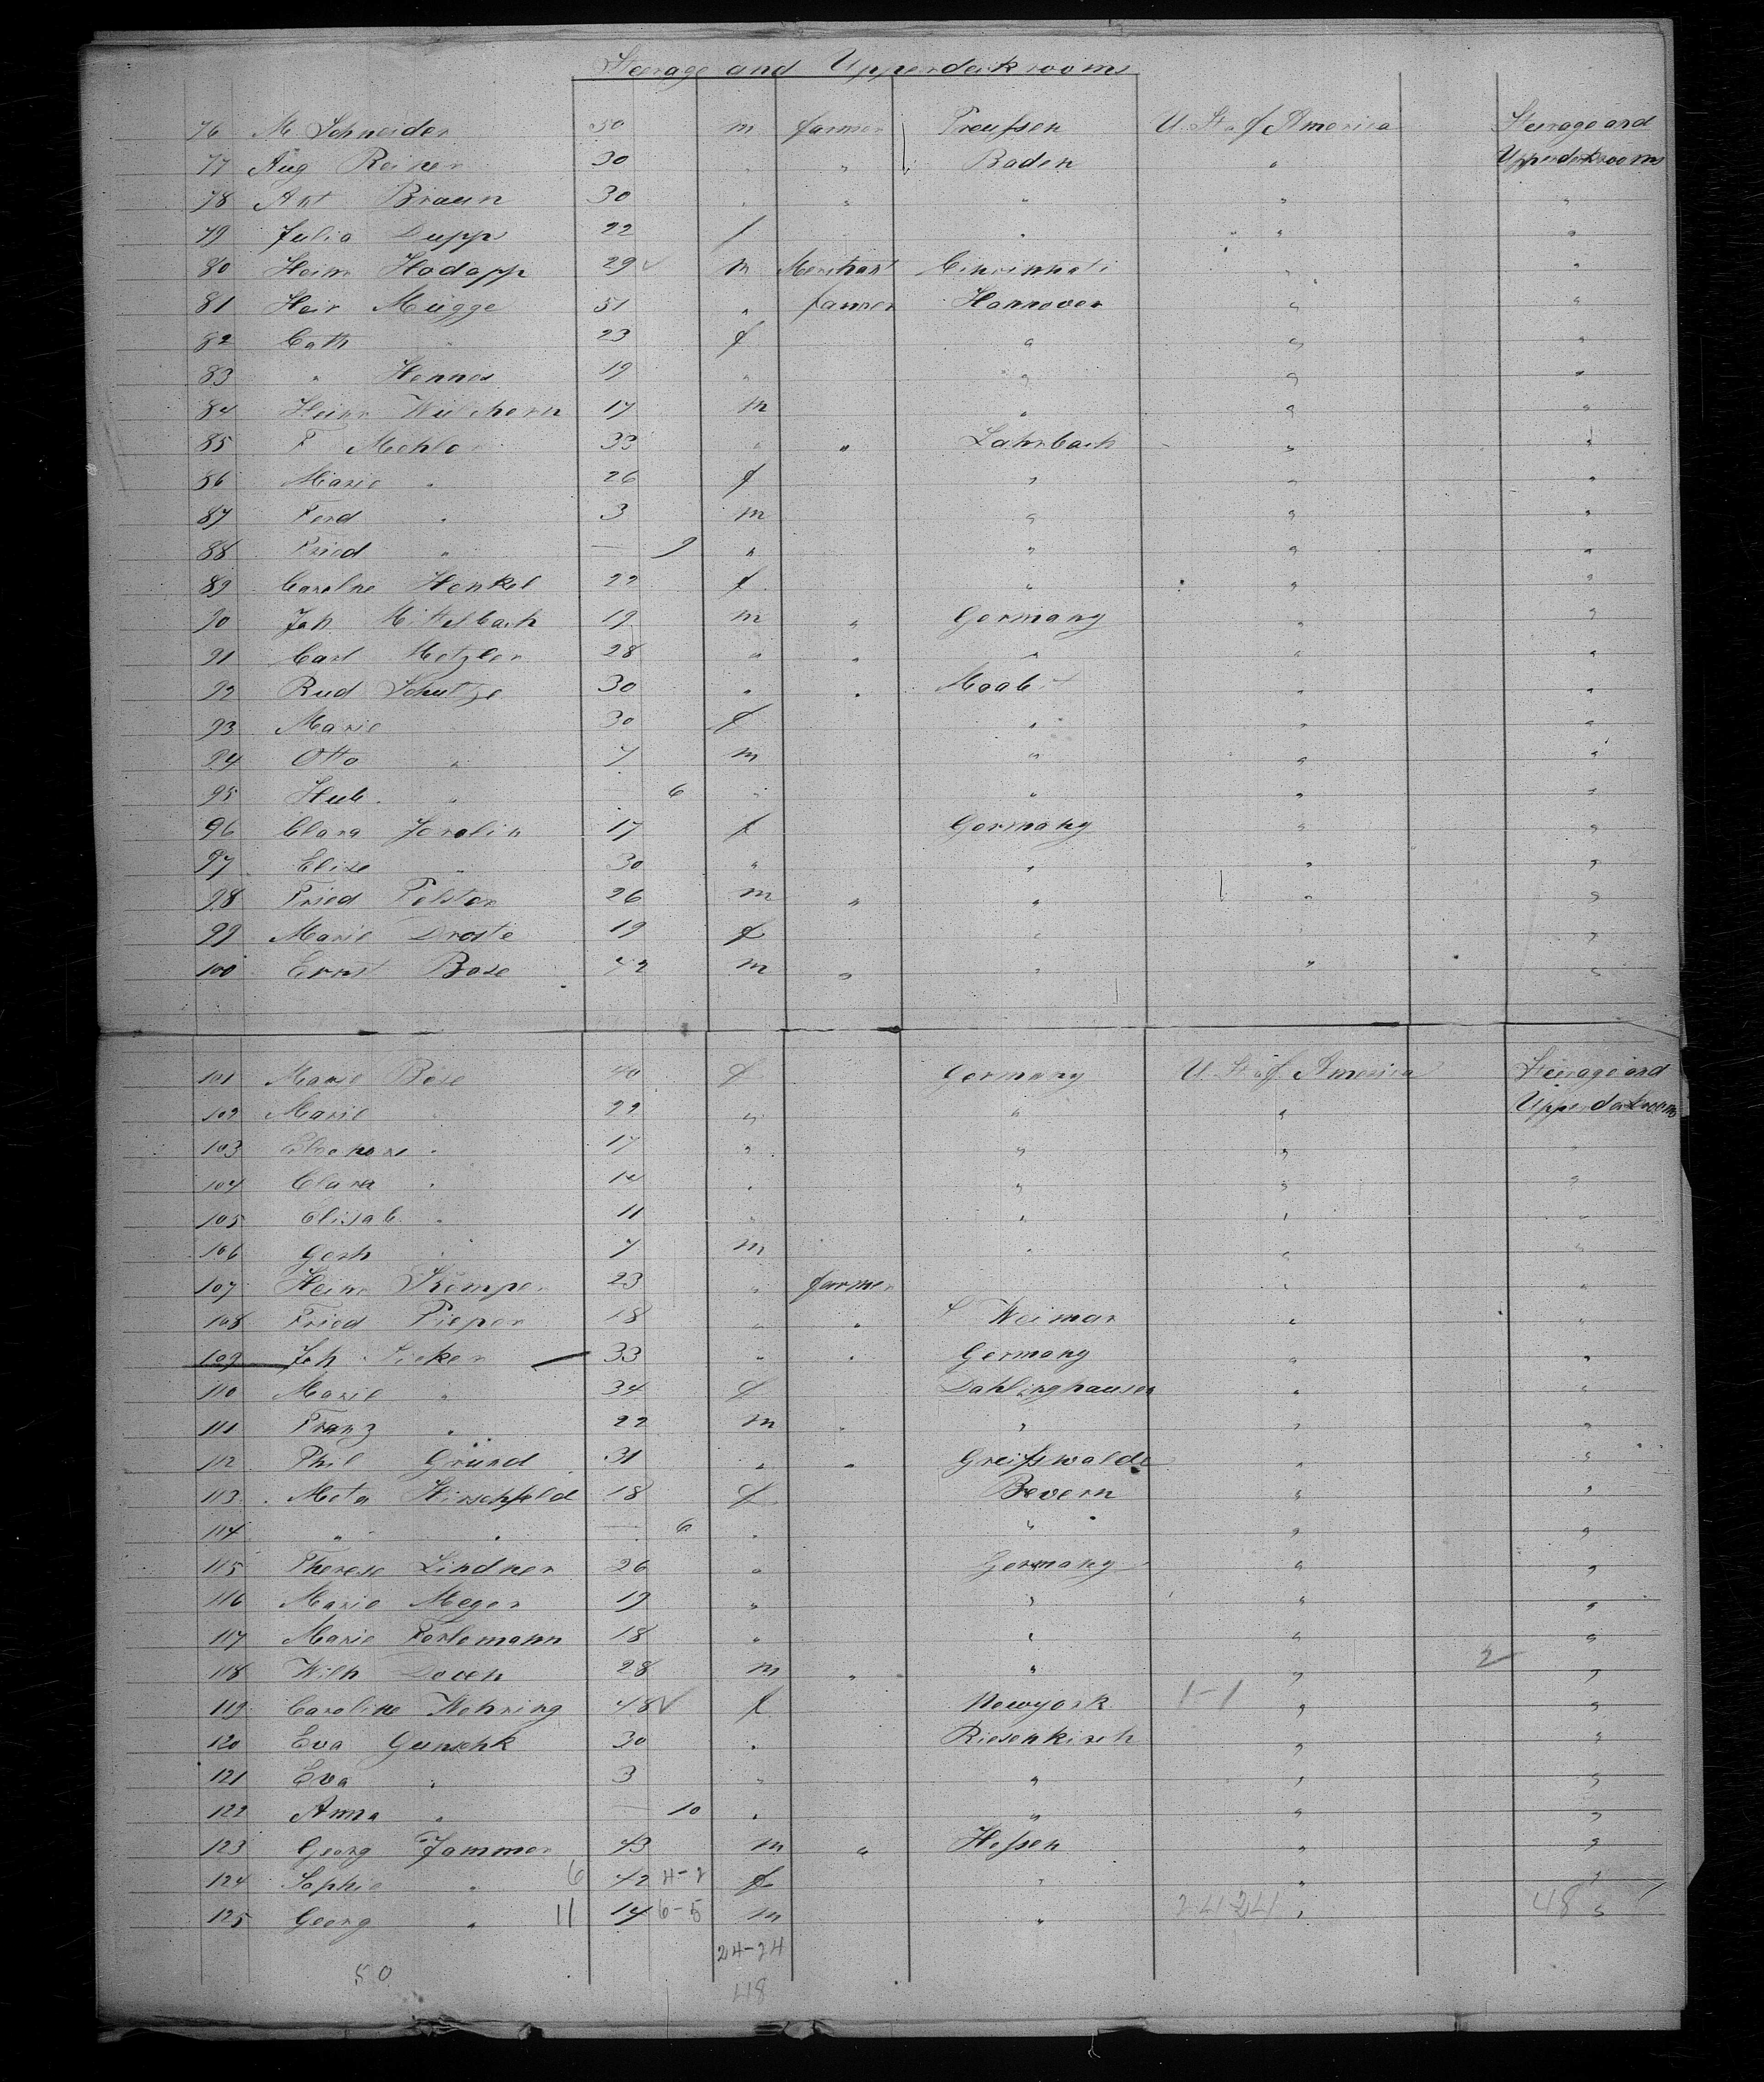 Steerage and Upperdeck rooms
76 M Schneider 50 m farmer Preußen U. St of America Steerage and
77 Aug Reiner 30 " " Baden " Upperdeckrooms
78 Ant Braun 30 " " " " "
79 Julia Dupps 22 f " " "
80 Heinr Hodapp 29 ✓ m Merchant Cincinnati " "
81 Heir Mügge 51 " farmer Hannover " "
82 Cath " 23 f " " "
83 " Hennes 19 " " " "
84 Heinr Wichern 17 m " " "
85 F Mehler 33 " " Lahrbach " "
86 Marie " 26 f " " "
87 Ferd " 3 m " " "
88 Fried " — 9 " " " "
89 Caroline Henkel 22 f " " "
90 Joh Mittelbach 19 m " Germany " "
91 Carl Metzler 28 " " " " "
92 Rud Schutze 30 " " Moabit " "
93 Marie " 30 f " " "
94 Otto " 7 m " " "
95 Hub. " 6 " " " "
96 Clara 17 f Germany " "
97 Elise " 30 " " " "
98 Fried Pelster 26 m " " " "
99 Marie Droste 19 f " " "
100 Ernst Bose 42 m " " " "
101 Marie Bose 40 f Germany U. St of America Steerage and
102 Marie " 22 " " " Upperdeckrooms
103 Eleonore " 17 " " " "
104 Clara " 14 " " " "
105 Elisab. " 11 " " " "
106 Gerh " 7 m " " "
107 Heinr Kemper 23 " farmer " " "
108 Fried Pieper 18 " " S Weimar " "
109 Joh Sieker 33 " " Germany " "
110 Marie " 34 f Dahlinghausen " "
111 Franz " 22 m " " " "
112 Phil Gründ 31 " " Greifswalde " "
113 Meta Hirschfeld 18 f Bevern " "
114 " " — 6 " " " "
115 Therese Lindner 26 " Germany " "
116 Marie Meyer 19 " " " "
117 Marie Fortemann 18 " " " "
118 Wilh Doven 28 m " " " 2 "
119 Caroline Nehring 48 ✓ f Newyork 1-1 " "
120 Eva Gunschk 30 " Riesenkirch " "
121 Eva " 3 " " " "
122 Anna " — 10 " " " "
123 Georg Jammer 43 m " Heßen " "
124 Sophie " 6 42 4-2 f " " "
125 Georg " 11 14 6-5 m " 24 24 " 48 "
24-24
50 48